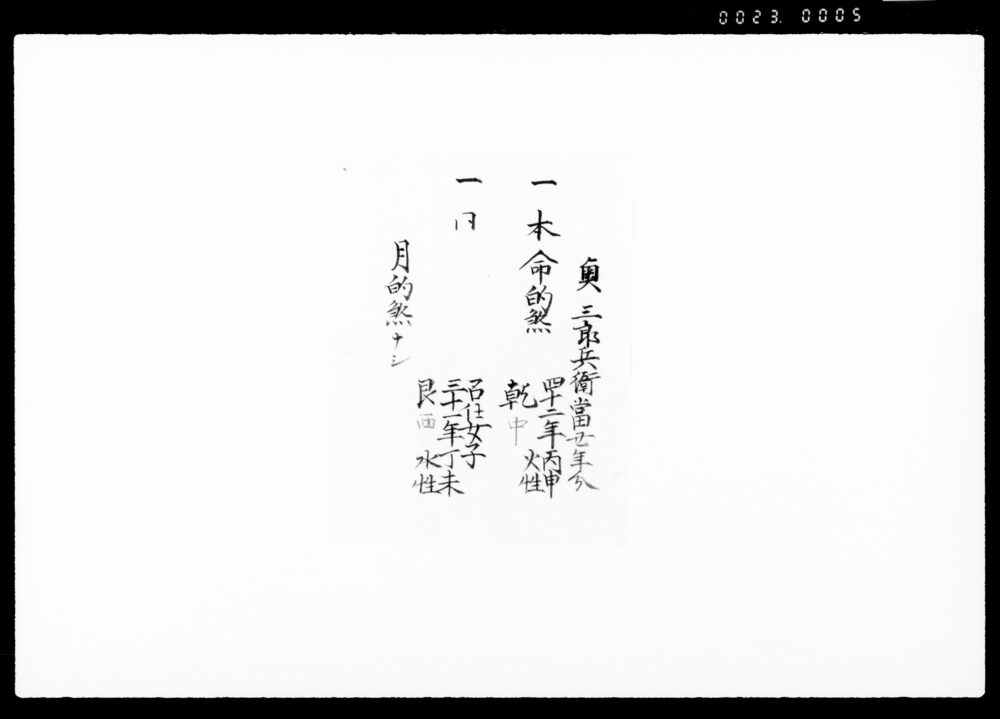 0023. 0005
奥三郎兵衛當廿年分
一本命的煞
四十二年丙申
火性
乾中
一同
召仕女子
三十一年丁未
水性
艮西
月的煞ナシ